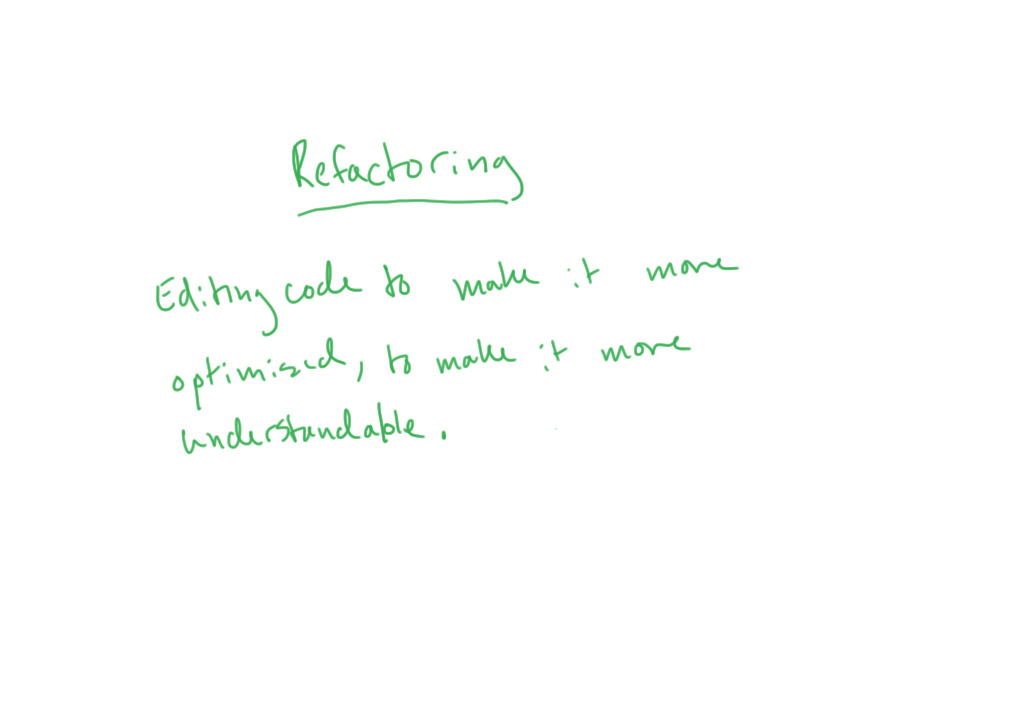 Refactoring
Editing code to make it more
optimised, to make it more
understandable.